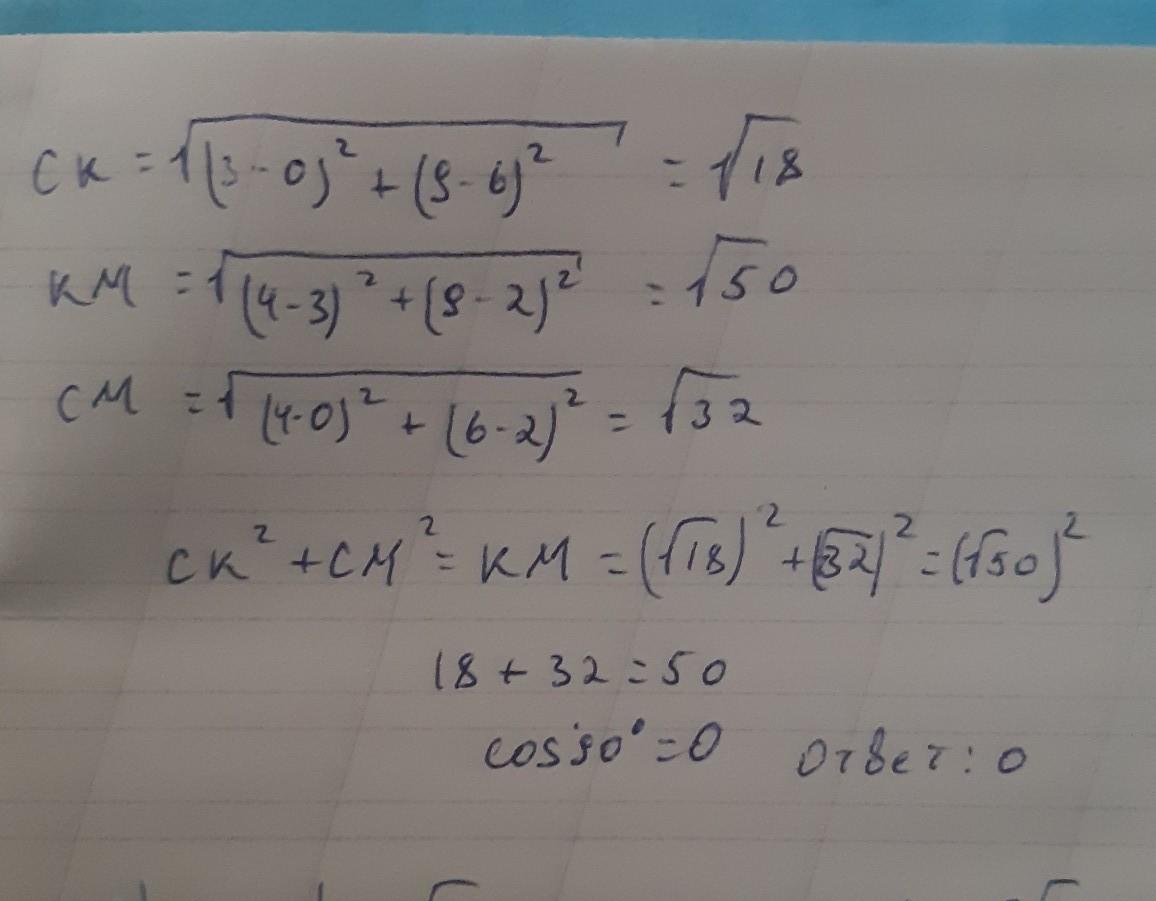 СК = √(3-0)² + (9-6)² = √18
КМ = √(4-3)² + (9-2)² = √50
СМ = √(4-0)² + (6-2)² = √32
СК² + СМ² = КМ = (√18)² + (√32)² = (√50)²
18 + 32 = 50
cos90° = 0 Ответ: 0